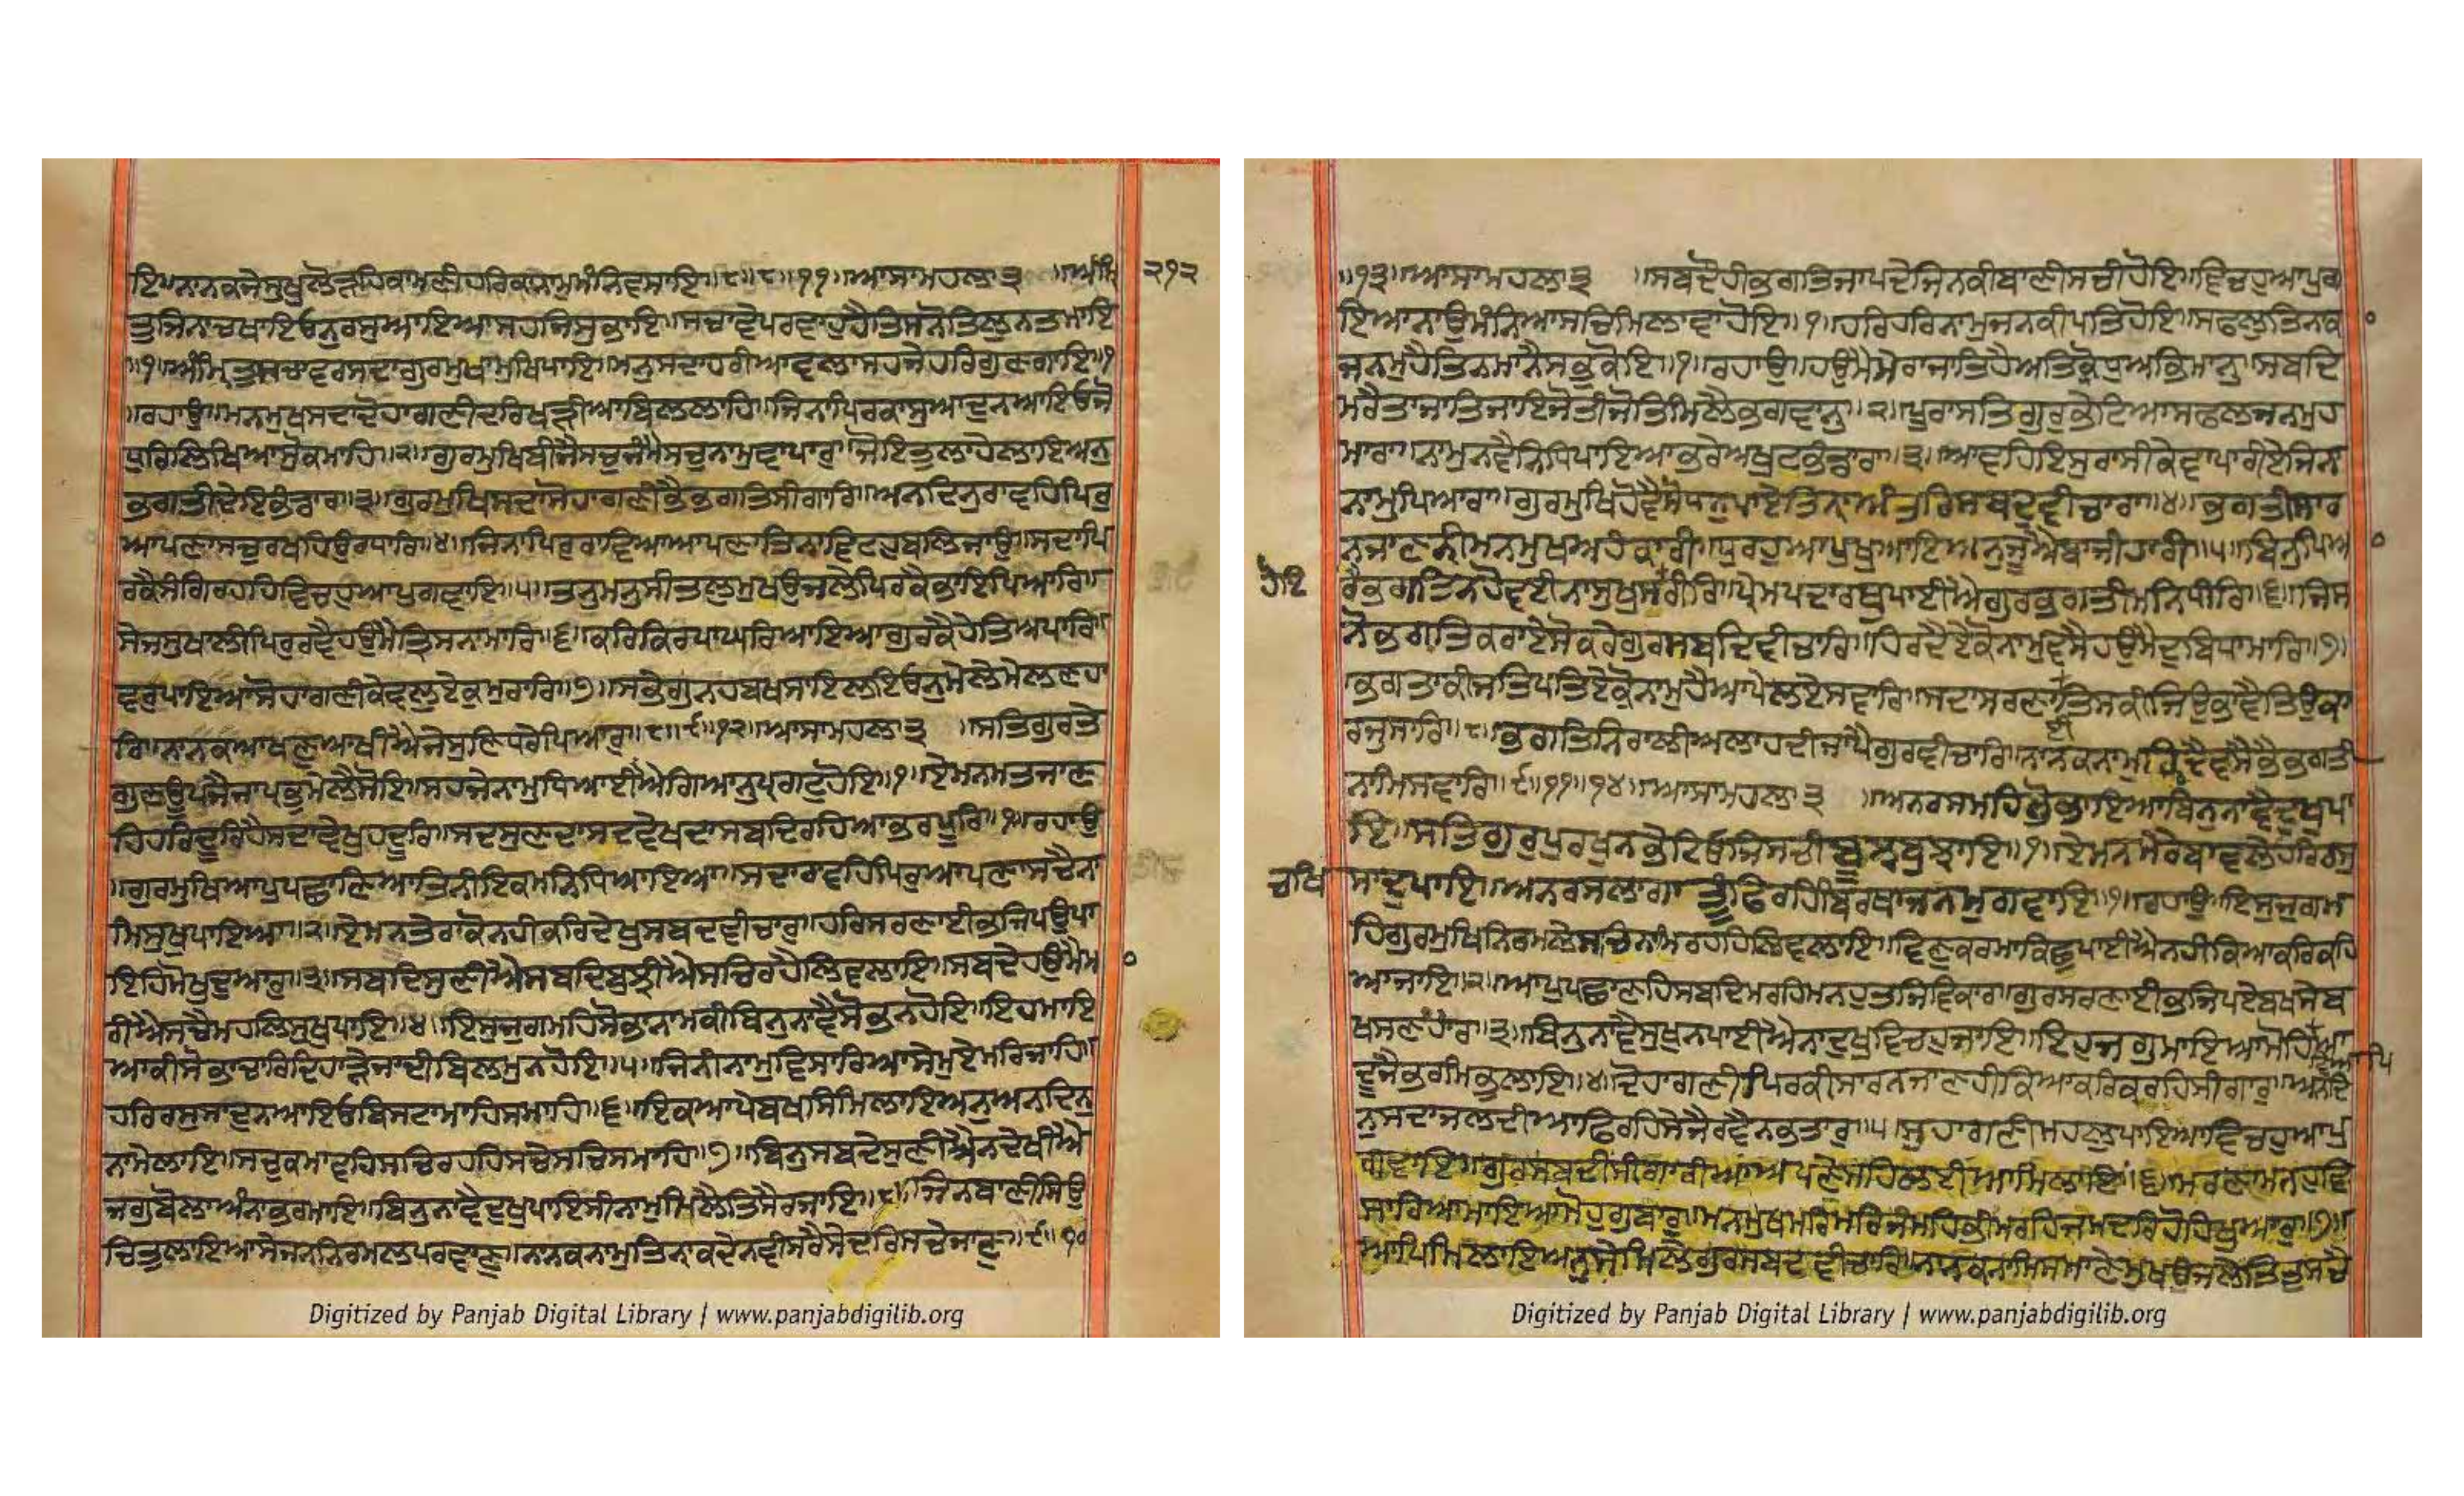 ਇ॥ਨਾਨਕਜੇਸੁਖੁਲੋੜਹਿਕਾਮਣੀਹਰਿਕਾਨਾਮੁਮੰਨਿਵਸਾਇ॥੮॥੮॥੧੧॥ਆਸਾਮਹਲਾ੩ ॥ਅੰਮ੍ਰਿ ੨੧੨
ਤੁਜਿਨਾਚਖਾਇਓਨੁਰਸੁਆਇਆਸਹਜਿਸੁਭਾਇ॥ਸਚਾਵੇਪਰਵਾਹੁਹੈਤਿਸਨੋਤਿਲੁਨਤਮਾਇ
॥੧॥ਅੰਮ੍ਰਿਤੁਸਚਾਵਰਸਦਾਗੁਰਮੁਖਾਮੁਖਿਪਾਇ॥ਮਨੁਸਦਾਹਰੀਆਵਲਾਸਹਜੇਹਰਿਗੁਣਗਾਇ॥੧
॥ਰਹਾਉ॥ਮਨਮੁਖਸਦਾਦੋਹਾਗਣੀਦਰਿਖੜੀਆਬਿਲਲਾਹਿ॥ਜਿਨਾਪਿਰਕਾਸੁਆਦੁਨਆਇਓਜੋ
ਧੁਰਿਲਿਖਿਆਸੋੁਕਮਾਹਿ॥੨॥ਗੁਰਮੁਖਿਬੀਜੈਸਚੁਜੰਮੈਸਚੁਨਾਮੁਵਾਪਾਰੁ॥ਜੋਇਤੁਲਾਹੈਲਾਇਅਨੁ
ਭਗਤੀਦੇਇਭੰਡਾਰ॥੩॥ਗੁਰਮੁਖਿਸਦਾਸੋਹਾਗਣੀਭੈਭਗਤਿਸੀਗਾਰਿ॥ਅਨਦਿਨੁਰਾਵਹਿਪਿਰੁ
ਆਪਣਾਸਚੁਰਖਹਿਉਰਧਾਰਿ॥੪॥ਜਿਨਾਪਿਰੁਰਾਵਿਆਆਪਣਾਤਿਨਾਵਿਟਹੁਬਲਿਜਾਉ॥ਸਦਾਪਿ
ਰਕੈਸੰਗਿਰਹਹਿਵਿਚਹੁਆਪੁਗਵਾਇ॥੫॥ਤਨੁਮਨੁਸੀਤਲੁਮੁਖਉਜਲੇਪਿਰਕੈਭਾਇਪਿਆਰਿ॥
ਸੇਜਸੁਖਾਲੀਪਿਰੁਰਵੈਹਉਮੈਤ੍ਰਿਸਨਾਮਾਰਿ॥੬॥ਕਰਿਕਿਰਪਾਘਰਿਆਇਆਗੁਰਕੈਹੇਤਿਅਪਾਰਿ॥
ਵਰੁਪਾਇਆਸੋਹਾਗਣੀਕੇਵਲੁਏਕੁਮੁਰਾਰਿ॥੭॥ਸਭੇਗੁਨਹਬਖਸਾਇਲਇਓਨੁਮੇਲੇਮੇਲਣਹਾ
ਰਿ॥ਨਾਨਕਆਖਣੁਆਖੀਐਜੇਸੁਣਿਧਰੇਪਿਆਰੁ॥੮॥੯॥੧੨॥ਆਸਾਮਹਲਾ੩ ॥ਸਤਿਗੁਰਤੇ
ਗੁਣਊਪਜੈਜਾਪ੍ਰਭੁਮੇਲੈਸੋਇ॥ਸਹਜੇਨਾਮੁਧਿਆਈਐਗਿਆਨੁਪ੍ਰਗਟੁਹੋਇ॥੧॥ਏਮਨਮਤਜਾਣ
ਹਿਹਰਿਦੂਰਿਹੈਸਦਾਵੇਖੁਹਦੂਰਿ॥ਸਦਸੁਣਦਾਸਦਵੇਖਦਾਸਬਦਿਰਹਿਆਭਰਪੂਰਿ॥੧॥ਰਹਾਉ
॥ਗੁਰਮੁਖਿਆਪੁਪਛਾਣਿਆਤਿਨੀਇਕਮਨਿਧਿਆਇਆ॥ਸਦਾਰਵਹਿਪਿਰੁਆਪਣਾਸਚੈਨਾ
ਮਿਸੁਖੁਪਾਇਆ॥੨॥ਏਮਨਤੇਰਾਕੋਨਹੀਕਰਿਦੇਖੁਸਬਦਵੀਚਾਰੁ॥ਹਰਿਸਰਣਾਈਭਜਿਪਉਪਾ
ਇਹਿਮੋਖੁਦੁਆਰੁ॥੩॥ਸਬਦਿਸੁਣੀਐਸਬਦਿਬੁਝੀਐਸਚਿਰਹੈਲਿਵਲਾਇ॥ਸਬਦੇਹਉਮੈਮਾ
ਰੀਐਸਚੈਮਹਲਿਸੁਖੁਪਾਇ॥੪॥ਇਸੁਜੁਗਮਹਿਸੋਭਾਨਾਮਕੀਬਿਨੁਨਾਵੈਸੋਭਨਹੋਇ॥ਇਹਮਾਇ
ਆਕੀਸੋਭਾਚਾਰਿਦਿਹਾੜੇਜਾਦੀਬਿਲਮੁਨਹੋਇ॥੫॥ਜਿਨੀਨਾਮੁਵਿਸਾਰਿਆਸੇਮੁਏਮਰਿਜਾਹਿ॥
ਹਰਿਰਸਸਾਦੁਨਆਇਓਬਿਸਟਾਮਾਹਿਸਮਾਹਿ॥੬॥ਇਕਿਆਪੇਬਖਸਿਮਿਲਾਇਅਨੁਅਨਦਿਨੁ
ਨਾਮੇਲਾਇ॥ਸਚੁਕਮਾਵਹਿਸਚਿਰਹਹਿਸਚੇਸਚਿਸਮਾਹਿ॥੭॥ਬਿਨੁਸਬਦੈਸੁਣੀਐਨਦੇਖੀਐ
ਜਗੁਬੋਲਾਅੰਨਾਭਰਮਾਇ॥ਬਿਨੁਨਾਵੈਦੁਖੁਪਾਇਸੀਨਾਮੁਮਿਲੈਤਿਸੈਰਜਾਇ॥੮॥ਜਿਨਬਾਣੀਸਿਉ
ਚਿਤੁਲਾਇਆਸੇਜਨਨਿਰਮਲਪਰਵਾਣੁ॥ਨਾਨਕਨਾਮੁਤਿਨਾਕਦੇਨਵੀਸਰੈਸੇਦਰਿਸਚੇਜਾਣੁ॥੯॥੧੦
Digitized by Panjab Digital Library | www.panjabdigilib.org
॥੧੩॥ਆਸਾਮਹਲਾ੩ ॥ਸਬਦੌਹੀਭਗਤਜਾਪਦੇਜਿਨਕੀਬਾਣੀਸਚੀਹੋਇ॥ਵਿਚਹੁਆਪੁਗ
ਇਆਨਾਉਮੰਨਿਆਸਚਿਮਿਲਾਵਾਹੋਇ॥੧॥ਹਰਿਹਰਿਨਾਮੁਜਨਕੀਪਤਿਹੋਇ॥ਸਫਲੁਤਿਨਕਾ
ਜਨਮੁਹੈਤਿਨਮਾਨੈਸਭੁਕੋਇ॥੧॥ਰਹਾਉ॥ਹਉਮੈਮੇਰਾਜਾਤਿਹੈਅਤਿਕ੍ਰੋਧੁਅਭਿਮਾਨੁ॥ਸਬਦਿ
ਮਰੈਤਾਜਾਤਿਜਾਇਜੋਤੀਜੋਤਿਮਿਲੈਭਗਵਾਨੁ॥੨॥ਪੂਰਾਸਤਿਗੁਰੁਭੇਟਿਆਸਫਲਜਨਮੁਹ
ਮਾਰਾ॥ਨਾਮੁਨਵੈਨਿਧਿਪਾਇਆਭਰੇਅਖੁਟਭੰਡਾਰਾ॥੩॥ਆਵਹਿਇਸੁਰਾਸੀਕੇਵਾਪਾਰੀਏਜਿਨਾ
ਨਾਮੁਪਿਆਰਾ॥ਗੁਰਮੁਖਿਹੋਵੈਸੋਧਨੁਪਾਏਤਿਨਾਅੰਤਰਿਸਬਦੁਵੀਚਾਰਾ॥੪॥ਭਗਤੀਸਾਰ
ਨਜਾਣਨੀਮਨਮੁਖਅਹੰਕਾਰੀ॥ਧੁਰਹੁਆਪਿਖੁਆਇਅਨੁਜੂਐਬਾਜੀਹਾਰੀ॥੫॥ਬਿਨੁਪਿਆ
ਹੋਇ ਰੈਭਗਤਿਨਹੋਵਈਨਾਸੁਖੁਸਰੀਰਿ॥ਪ੍ਰੇਮਪਦਾਰਥੁਪਾਈਐਗੁਰਭਗਤੀਮਨਧੀਰਿ॥੬॥ਜਿਸ
ਨੋਭਗਤਿਕਰਾਏਸੋਕਰੇਗੁਰਸਬਦਿਵੀਚਾਰਿ॥ਹਿਰਦੈਏਕੋਨਾਮੁਵਸੈਹਉਮੈਦੁਬਿਧਾਮਾਰਿ॥੭॥
ਭਗਤਾਕੀਜਤਿਪਤਿਏਕੋਨਾਮੁਹੈਆਪੇਲਏਸਵਾਰਿ॥ਸਦਾਸਰਣਾਤਿਸਕੀਜਿਉਭਾਵੈਤਿਉਕਾ
ਰਜੁਸਾਰਿ॥੮॥ਭਗਤਿਨਿਰਾਲੀਅਲਾਹਦੀਜਾਪੈਗੁਰਵੀਚਾਰਿ॥ਨਾਨਕਨਾਮੁਹਿਰਦੈਵਸੈਭੈਭਗਤੀ
ਨਾਮਿਸਵਾਰਿ॥੯॥੧੧॥੧੪॥ਆਸਾਮਹਲਾ੩ ॥ਅਨਰਸਮਹਿਭੋਲਾਇਆਬਿਨੁਨਾਵੈਦੁਖਪਾ
ਇ॥ਸਤਿਗੁਰੁਪੁਰਖੁਨਭੇਟਿਓਜਿਸਚੀਬੂਝਬੁਝਾਇ॥੧॥ਏਮਨਮੇਰੇਬਾਵਲੇਹਰਿਰਸੁ
ਚਖਿ ਸਾਦੁਪਾਇ॥ਅਨਰਸਲਾਗਾਤੂੰਫਿਰਹਿਬਿਰਥਾਜਨਮੁਗਵਾਇ॥੧॥ਰਹਾਉ॥ਇਸੁਜੁਗਮ
ਹਿਗੁਰਮੁਖਨਿਰਮਲੇਸਚਿਨਾਮਿਰਹਹਿਲਿਵਲਾਇ॥ਵਿਣੁਕਰਮਾਕਿਛੁਪਾਈਐਨਹੀਕਿਆਕਰਿਕਹਿ
ਆਜਾਇ॥੨॥ਆਪੁਪਛਾਣਹਿਸਬਦਿਮਰਹਿਮਨਹੁਤਜਿਵਿਕਾਰ॥ਗੁਰਸਰਣਾਈਭਜਿਪਏਬਖਸੇਬ
ਖਸਣਹਾਰ॥੩॥ਬਿਨੁਨਾਵੈਸੁਖੁਨਪਾਈਐਨਾਦੁਖੁਵਿਚਹੁਜਾਇ॥ਇਹੁਜਗੁਮਾਇਆਮੋਹਿਵਿਆਪਿਆ
ਦੂਜੈਭਰਮਿਭੁਲਾਇ॥੪॥ਦੋਹਾਗਣੀਪਿਰਕੀਸਾਰਨਜਾਣਹੀਕਿਆਕਰਿਕਰਹਿਸੀਗਾਰੁ॥ਅਨਦਿ
ਨੁਸਦਾਜਲਦੀਆਫਿਰਹਿਸੇਜੈਰਵੈਨਭਤਾਰੁ॥੫॥ਸੁਹਾਗਣੀਮਹਲੁਪਾਇਆਵਿਚਹੁਆਪੁ
ਗਵਾਇ॥ਗੁਰਸਬਦੀਸੀਗਾਰੀਆਆਪਣੇਸਹਿਲਈਆਮਿਲਾਇ॥੬॥ਮਰਣਾਮਨਹੁਵਿ
ਸਾਰਿਆਮਾਇਆਮੋਹੁਗੁਬਾਰੁ॥ਮਨਮੁਖਮਰਿਮਰਿਜੰਮਹਿਭੀਮਰਹਿਜਮਦਰਿਹੋਹਿਖੁਆਰੁ॥੭॥
ਆਪਿਮਿਲਾਇਅਨੁਸੇਮਿਲੇਗੁਰਸਬਦਵੀਚਾਰਿ॥ਨਾਨਕਨਾਮਿਸਮਾਣੇਮੁਖਉਜਲੇਤਿਤੁਸਚੈ
Digitized by Panjab Digital Library | www.panjabdigilib.org